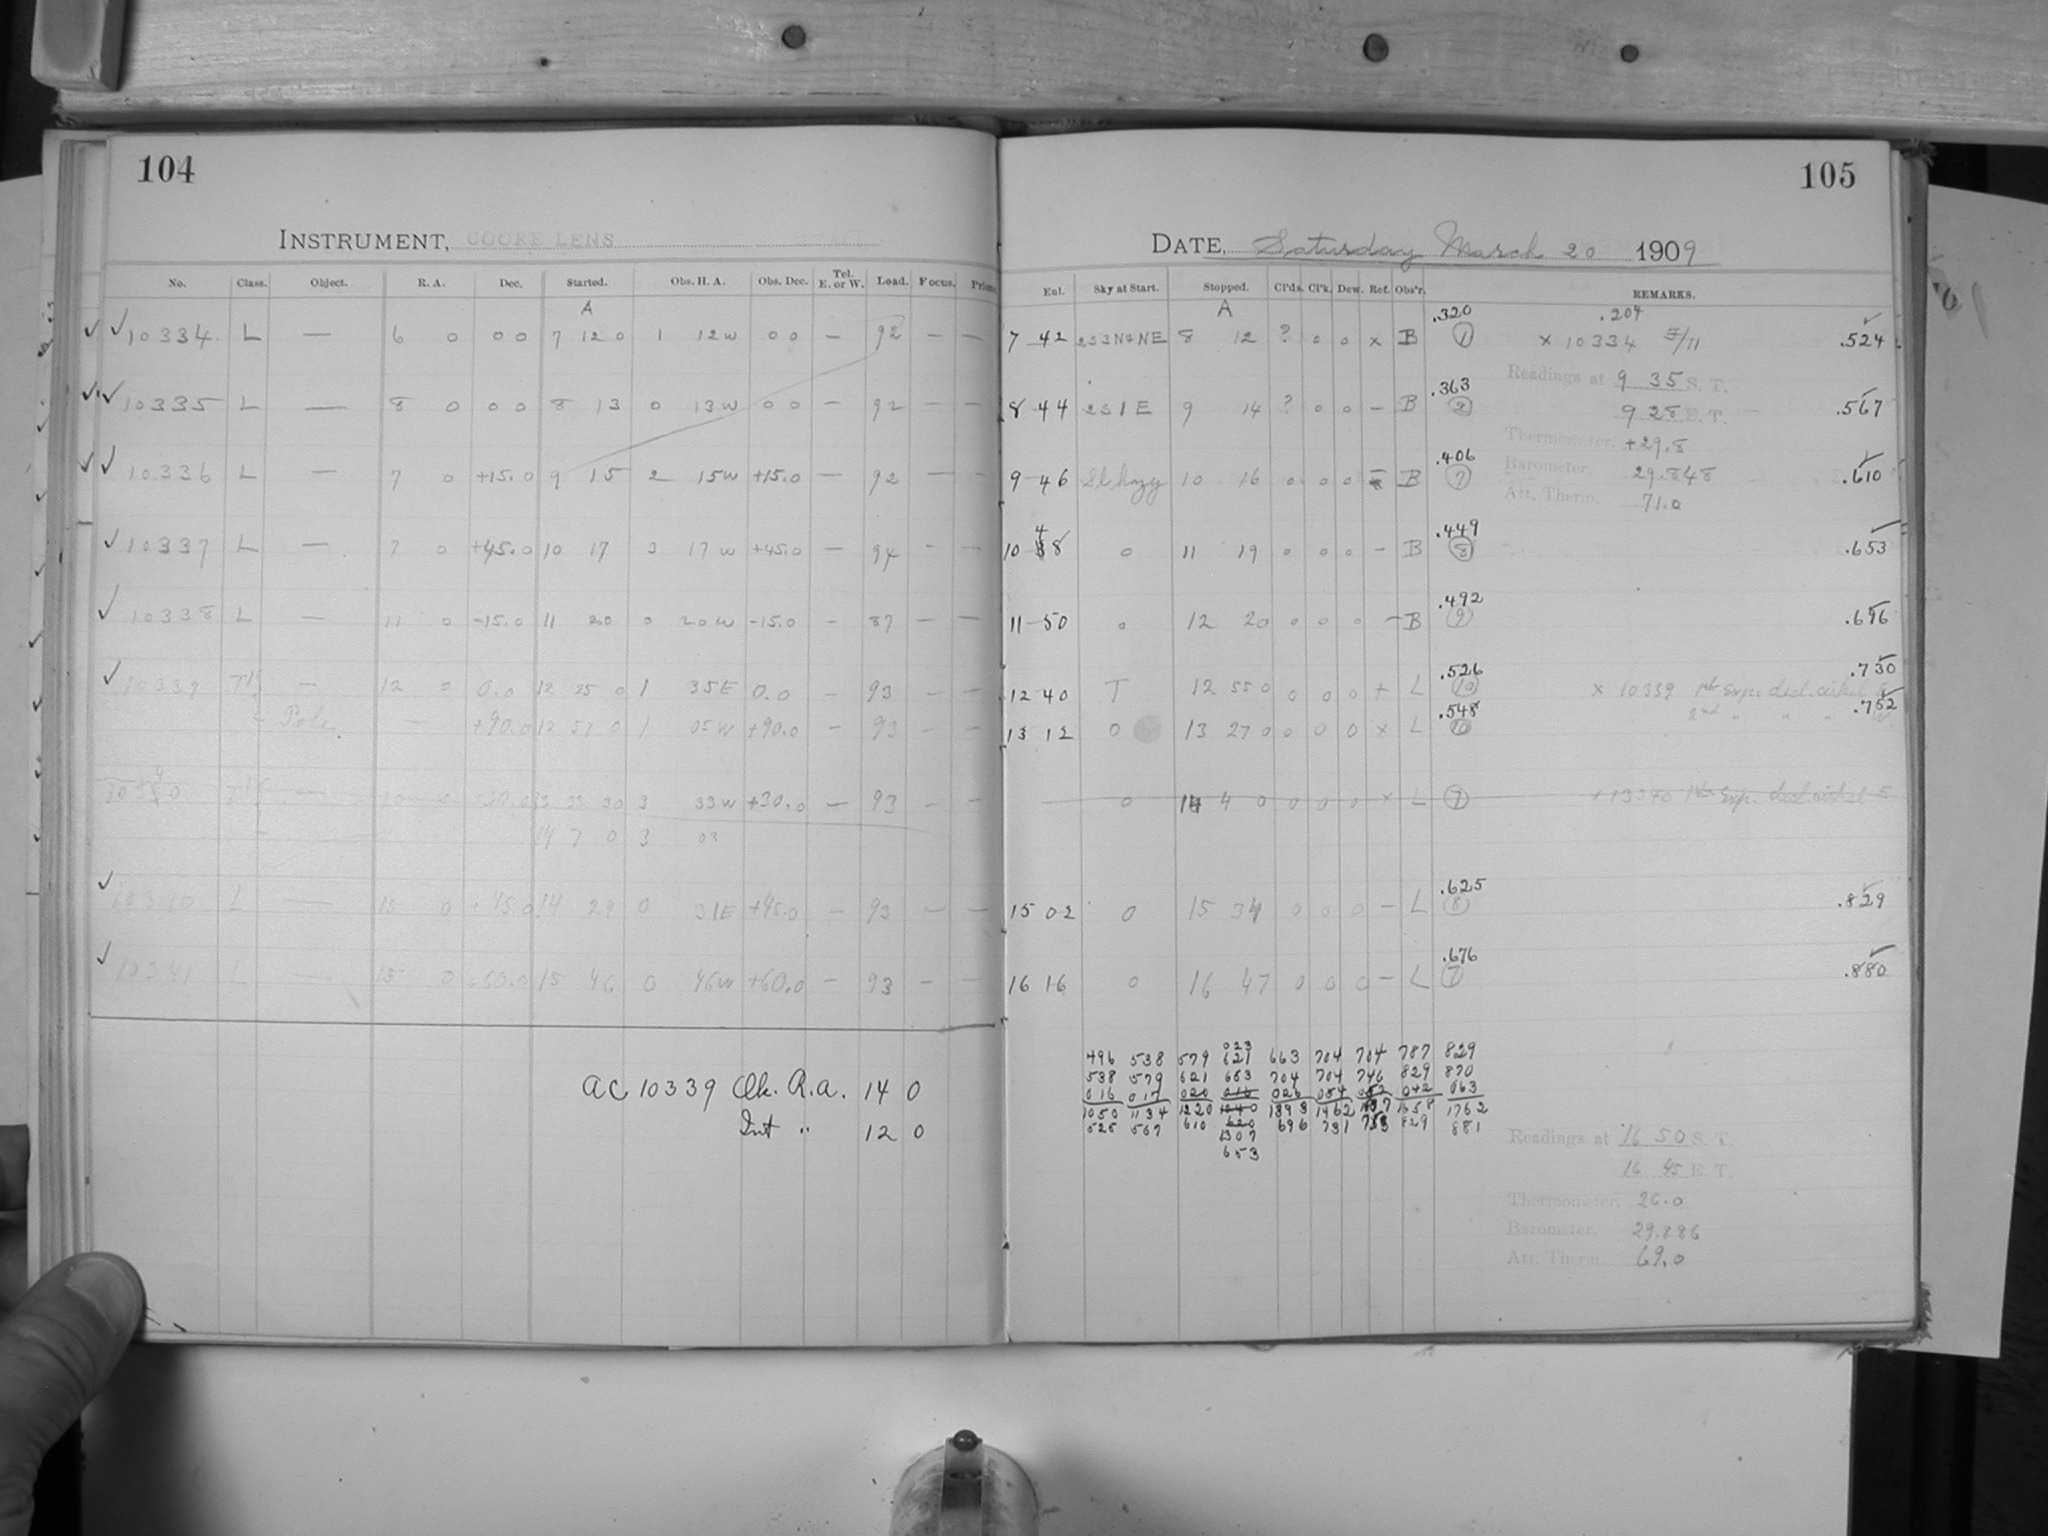 104
INSTRUMENT, COOKE LENS
No. Class. Object. R. A. Dec. Started. Obs. H. A. Obs. Dec. Tel. E. or W. Load. Focus. Prism
A
✓ ✓ 10334 L — 6 0 0 0 7 12 0 1 12 W 0 0 — 92 — —
✓ ✓ 10335 L — 8 0 0 0 8 13 0 13 W 0 0 — 92 — —
✓ ✓ 10336 L — 7 0 +15.0 9 15 2 15 W +15.0 — 92 — —
✓ 10337 L — 7 0 +45.0 10 17 3 17 W +45.0 — 94 — —
✓ 10338 L — 11 0 -15.0 11 20 0 20 W -15.0 — 87 — —
✓ 10339 — 12 0 0.0 12 25 0 1 35 E 0.0 — 93 — —
Pole — +90.0 12 57 0 1 05 W +90.0 — 93 — —
33 30 3 33 W +30.0 — 93
14 7 0 3 02
✓ 10340 L — 15 0 +45.0 14 29 0 31 E +45.0 — 93 — —
✓ 10341 L — 15 0 +60.0 15 46 0 46 W +60.0 — 93 — —
AC 10339 Ok. R.a. 14 0
Int " 12 0
105
DATE, Saturday March 20 1909
Eul. Sky at Start. Stopped. Cl'ds. Cl'k. Dew. Ref. Obs'r. REMARKS.
A .320 .204
7 42 8 12 ? 0 0 x B (1) x 10334 .524
Readings at 9 35 S. T.
.363
8 44 9 14 ? 0 0 — B (2) 9 28 E. T. .567
Thermometer, +29.8
.406
9 46 Sl hazy 10 16 0 0 0 B (7) Barometer. 29.848 .610
Att. Therm. 71.0
.449
10 48 0 11 19 0 0 0 — B (8) .653
.492
11 50 0 12 20 0 0 0 — B (9) .696
.526 .730
12 40 T 12 55 0 0 0 0 + L (10) x 10339 1st Exp. decl. circle E
.548 2nd " " " W .752
13 12 0 13 27 0 0 0 0 x L (10)
0 14 4 0 0 0 0 x L (7) 1st Exp. decl. circle E
.625
15 02 0 15 34 0 0 0 — L (8) .829
.676
16 16 0 16 47 0 0 0 — L (7) .880
023
496 538 579 621 663 704 704 787 829
538 579 621 663 704 704 746 829 870
016 017 020 026 054 042 063
1050 1134 1220 1040 1393 1462 1658 1762
525 567 610 620 696 731 753 829 881
1307
653
Readings at 16 50 S. T.
16 45 E. T.
Thermometer. 26.0
Barometer. 29.886
Att. Therm. 69.0